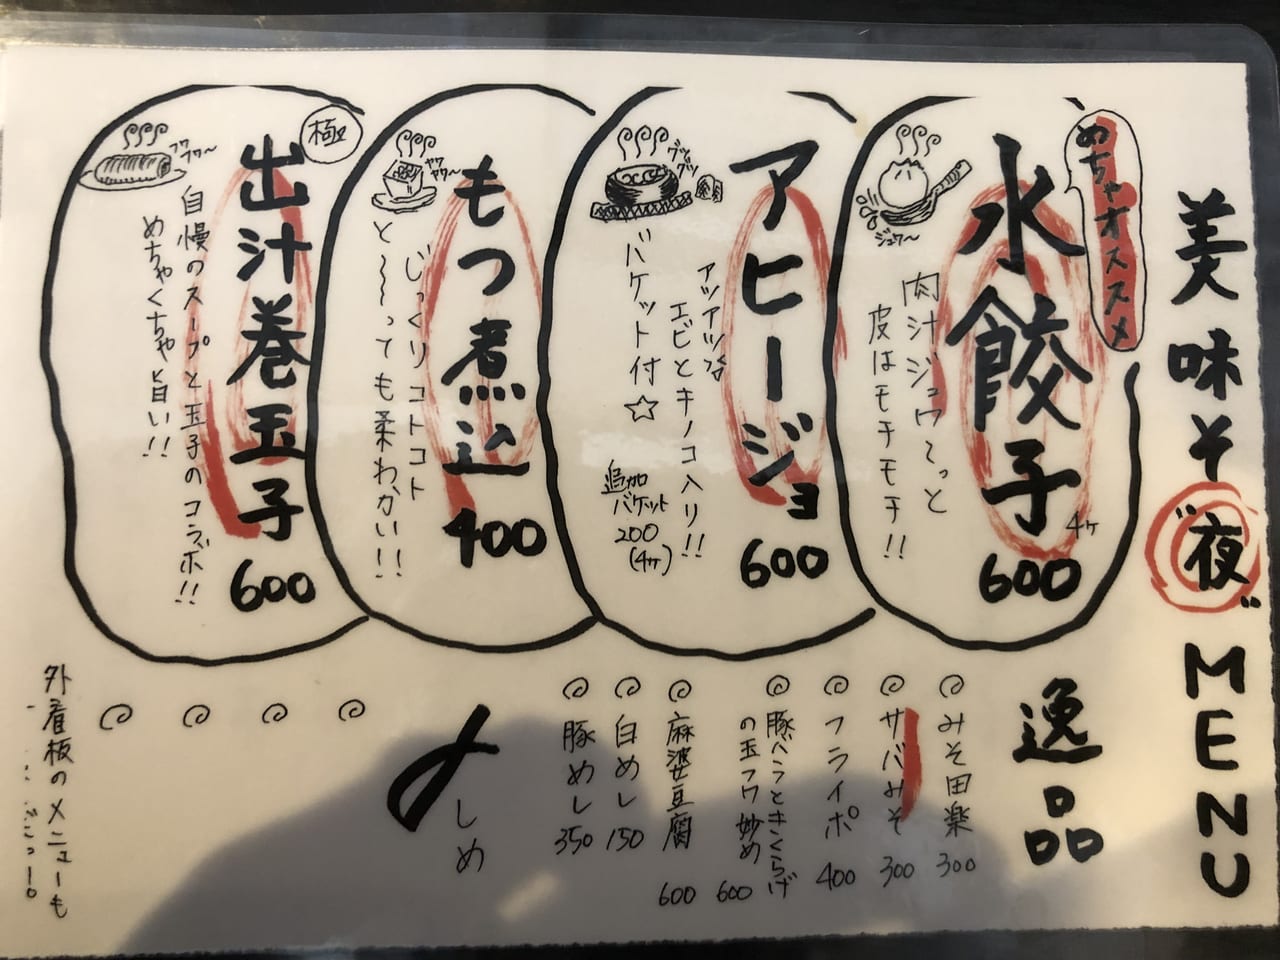 美味そ"夜"MENU
めちゃオススメ
水餃子
4ヶ
600
肉汁ジュワ~っと
皮はモチモチ!!
ジュワ~
アヒージョ
600
グツグツ
アツアツ
エビとキノコ入り!!
バケット付☆
追加
バケット
200
(4ヶ)
もつ煮込
400
じっくりコトコト
と~~っても柔わかい!!
極
出汁巻玉子
600
自慢のスープと玉子のコラボ!!
めちゃくちゃ旨い!!
逸品
みそ田楽 300
サバみそ 300
フライポ 400
豚バラときくらげ
の玉フワ炒め 600
麻婆豆腐 600
白めし 150
豚めし 350
〆
しめ
外看板のメニューも